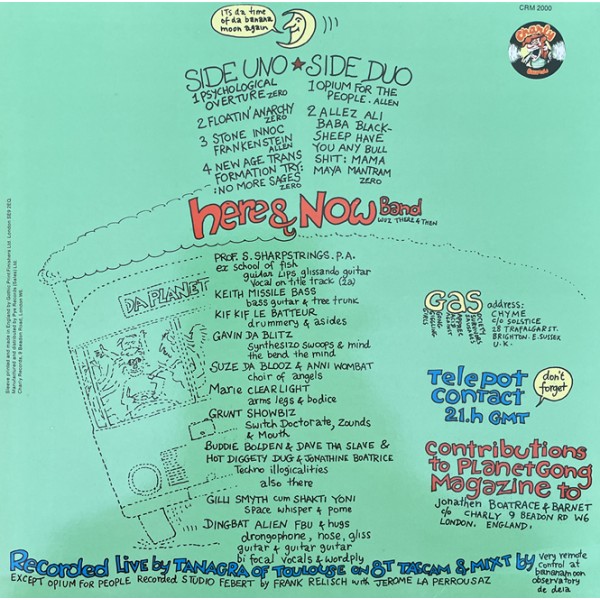 CRM 2000
ITS da time
of da banana
moon again
Charly
Records
SIDE UNO ★ SIDE DUO
1 PSYCHOLOGICAL
OVERTURE ZERO
2 FLOATIN' ANARCHY
ZERO
3 STONE INNOC
FRANKENSTEIN
ALLEN
4 NEW AGE TRANS
FORMATION TRY:
:NO MORE SAGES
ZERO
1 OPIUM FOR THE
PEOPLE. ALLEN
2 ALLEZ ALI
BABA BLACK-
SHEEP HAVE
YOU ANY BULL
SHIT: MAMA
MAYA MANTRAM
ZERO
here & NOW Band
WUZ THERE & THEN
PROF. S. SHARPSTRINGS. P.A.
ex school of fish
guitar Lips glissando guitar
Vocal on title track (2a)
KEITH MISSILE BASS
bass guitar & tree trunk
KIF KIF LE BATTEUR
drummery & asides
GAVIN DA BLITZ
Synthesizo swoops & mind
the bend the mind
SUZE DA BLOOZ & ANNI WOMBAT
choir of angels
Marie CLEARLIGHT
arms legs & bodice
GRUNT SHOWBIZ
Switch Doctorate, Zounds
& Mouth
BUDDIE BOLDEN & DAVE THA SLAVE &
HOT DIGGETY DUG & JONATHINE BOATRICE
Techno illogicalities
also there
GILLI SMYTH cum SHAKTI YONI
Space whisper & pome
DINGBAT ALIEN FBU & hugs
drongophone, nose, gliss
guitar & guitar guitar
bi focal vocals & wordply
DA PLANET
GAS
address:
CHYME
c/o SOLSTICE
28 TRAFALGAR ST.
BRIGHTON. E. SUSSEX
U.K.
Telepot
Contact
21.h GMT
don't
forget
contributions
to PLANETGONG
Magazine to
jonathen BOATRACE & BARNET
c/o CHARLY 9 BEADON RD W6
LONDON. ENGLAND.
Recorded Live by TANAGRA OF TOULOUSE on 8T TASCAM & MIXT by
very remote
control at
bananamoon
observatory
de deia
EXCEPT OPIUM FOR PEOPLE Recorded STUDIO FEBERT by FRANK RELISCH with JEROME LA PERROUSAZ
Sleeve printed and made in England by Gothic Print Finishers Ltd. London SE9 2EG
Manufactured and distributed by Pye Records (Sales) Ltd.
Charly Records, 9 Beadon Road, London W6